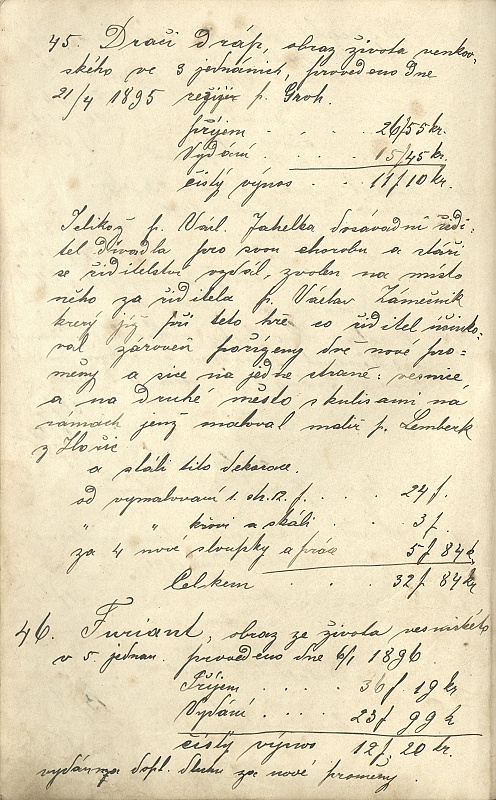 45. Dračí dráp, obraz života venkov-
ského ve 3 jednáních, provedeno dne
21/4 1895 režijér p. Groh.
příjem . . . . 26f 55 kr.
Vydání . . . . 15f 45 kr.
čistý výnos . . 11f 10 kr.
Jelikož p. Václ. Jahelka dosavadní ředi-
tel divadla pro svou chorobu a stáří
se ředitelství vzdal, zvolen na místo
něho za řiditela p. Václav Zámečník
který již při teto hře co řiditel účinko-
val zároveň pořízeny dvě nové pro-
měny a sice na jedné straně: vesnice
a na druhé město s kulisami na
rámach jenž maloval malíř p. Lemberk
z Hořic
a stáli tito dekorace.
od vymalovaní 1. str. 12. f. . . . 24 f.
" " křoví a skáli . . . 3 f
za 4 nové sloupky a prác 5 f 84 k
Celkem . . . . 32 f 84 kr
46. Furiant, obraz ze života vesnického
v 5. jednan. provedeno dne 6/1 1896.
Příjem . . . . 36 f 19 kr
Vydání . . . . 23 f 99 k
čistý výnos 12 f. 20 kr.
vydán na dopl. dluhu za nové proměny.